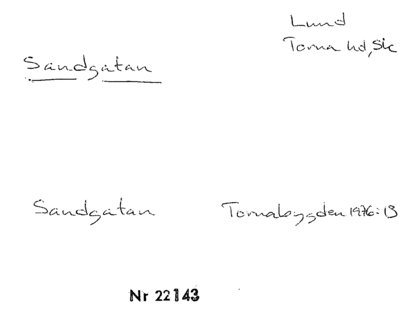 Lund
Torna hd, Sk
Sandgatan
Sandgatan Tornabygden 1976:13
Nr 22143